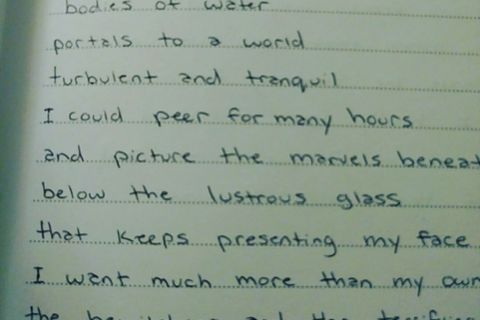 bodies of water
portals to a world
turbulent and tranquil
I could peer for many hours
and picture the marvels beneat
below the lustrous glass
that keeps presenting my face
I want much more than my own
the and the